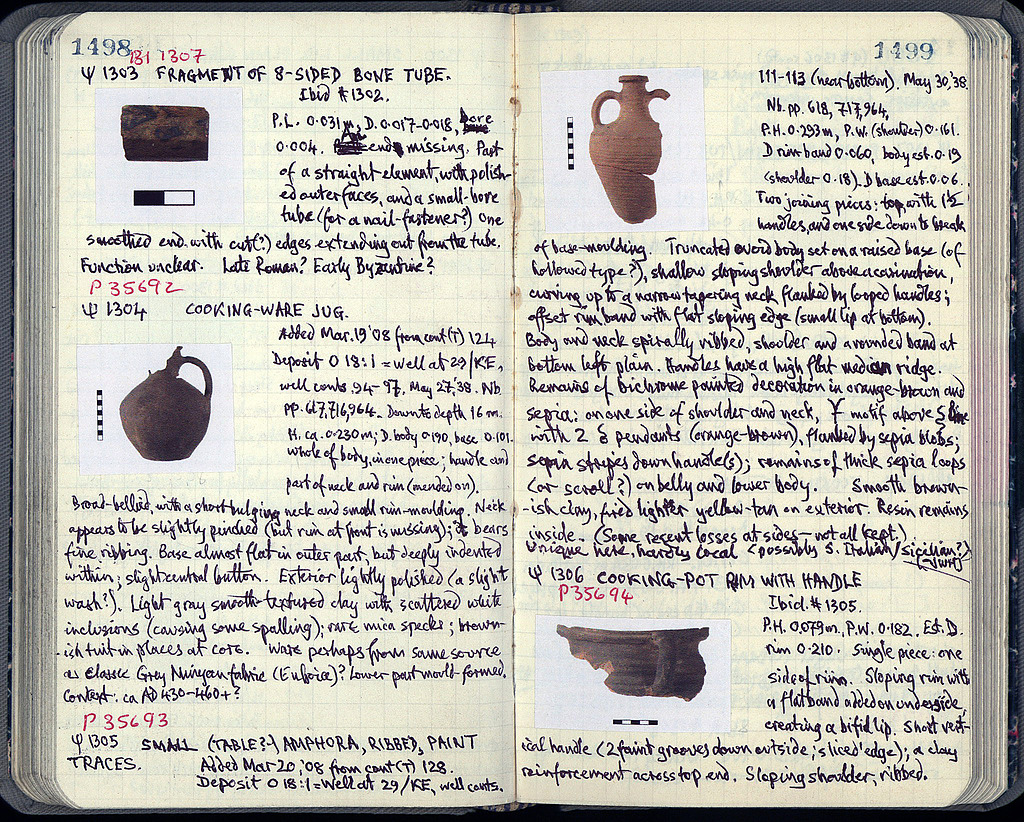 1498
BI 1307
Ψ 1303 FRAGMENT OF 8-SIDED BONE TUBE.
Ibid #1302.
P.L. 0.031m, D. 0.017-0.018, bore
0.004. end missing. Part
of a straight element, with polish-
ed outer faces, and a small-bore
tube (for a nail-fastener?) One
smoothed end with cut(?) edges extending out from the tube.
Function unclear. Late Roman? Early Byzantine?
P 35692
Ψ 1304 COOKING-WARE JUG.
Added Mar. 19 '08 from cont(T) 124
Deposit O 18:1 = Well at 29/KE,
well conts. 94-97, May 27, 38. Nb.
pp. 617, 716, 964. Down to depth 16 m.
H. ca. 0.230m; D. body 0.190, base 0.101.
Whole of body, in one piece; handle and
part of neck and rim (mended on).
Broad-bellied, with a short bulging neck and small rim-moulding. Neck
appears to be slightly pinched (but rim at front is missing); it bears
fine ribbing. Base almost flat in outer part, but deeply indented
within; slight central button. Exterior lightly polished (a slight
wash?). Light gray smooth-textured clay with scattered white
inclusions (causing some spalling); rare mica specks; brown-
ish tint in places at core. Ware perhaps from same source
as classic Grey Minyan fabric (Euboia)? Lower part mould-formed.
Context: ca AD 430-460+?
P 35693
Ψ 1305 SMALL (TABLE?-) AMPHORA, RIBBED, PAINT
TRACES. Added Mar 20, '08 from cont(T) 128.
Deposit O 18:1 = Well at 29/KE, well conts.
1499
111-113 (near bottom). May 30, 38.
Nb. pp. 618, 717, 964.
P.H. 0.293m, P.W. (shoulder) 0.161.
D rim band 0.060, body est. 0.19
(shoulder 0.18). D base est. 0.06.
Two joining pieces: top, with 1½
handles, and one side down to break
of base-moulding. Truncated ovoid body set on a raised base (of
hollowed type?), shallow sloping shoulder above a carination,
curving up to a narrow tapering neck flanked by looped handles;
offset rim band with flat sloping edge (small lip at bottom).
Body and neck spirally ribbed, shoulder and a rounded band at
bottom left plain. Handles have a high flat median ridge.
Remains of bichrome painted decoration in orange-brown and
sepia: on one side of shoulder and neck, motif above line
with 2 pendants (orange-brown), flanked by sepia blobs;
sepia stripes down handle(s); remains of thick sepia loops
(or scroll?) on belly and lower body. Smooth brown-
-ish clay, fired lighter yellow-tan on exterior. Resin remains
inside. (Some recent losses at sides - not all kept.)
Unique here, hardly local (possibly S. Italian/Sicilian?)
(JWH)
Ψ 1306 COOKING-POT RIM WITH HANDLE
P35694
Ibid. #1305.
P.H. 0.079m, P.W. 0.182. Est. D.
rim 0.210. Single piece: one
side of rim. Sloping rim with
a flat band added on underside,
creating a bifid lip. Short vert-
ical handle (2 faint grooves down outside; 'sliced' edge); a clay
reinforcement across top end. Sloping shoulder, ribbed.